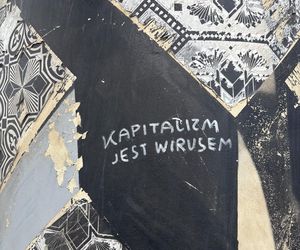 KAPITALIZM
JEST WIRUSEM